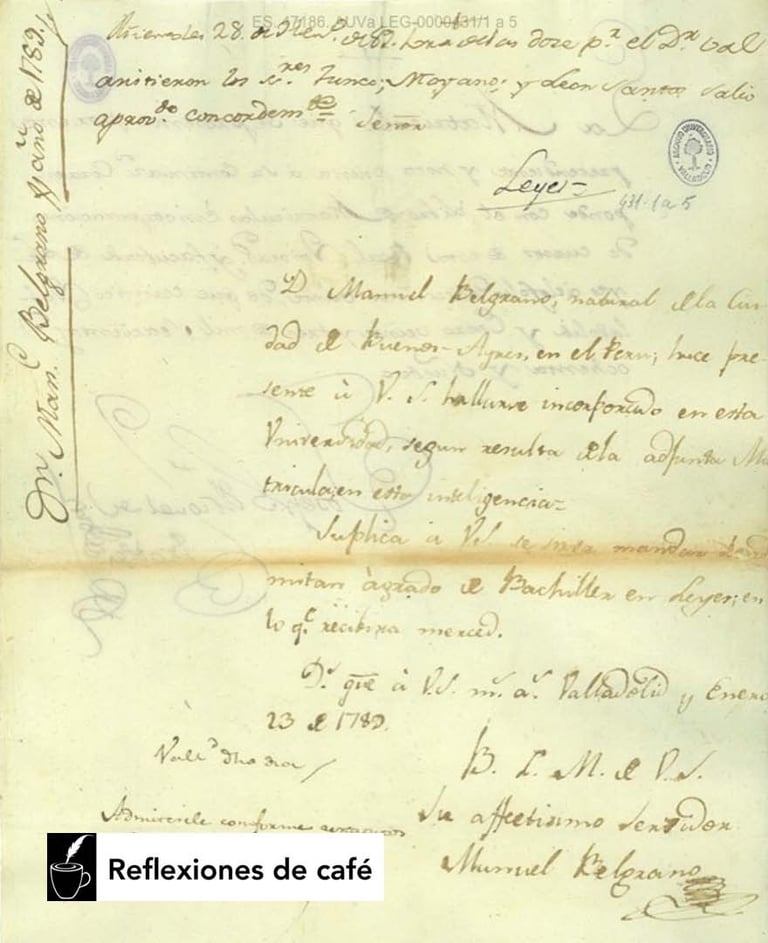 ES. 47186. AUVa LEG-0000431/1 a 5
Miercoles 28 de En.º de 89. hora de las doze p.r el D.r Val
asistieron los s.res Junco, Moyano, y Leon Santos salio
aprov.do concordem.te
Señor
Leyes
431-1 a 5
ARCHIVO UNIVERSITARIO VALLADOLID
Dn. Man.l Belgrano año de 1789.
D. Manuel Belgrano, natural de la Ciu-
dad de Buenos-Ayres, en el Peru; hace pre-
sente à V. S. hallarse incorporado en esta
Universidad, segun resulta de la adjunta Ma
tricula; en esta inteligencia=
Suplica à V.S. se sirva mandar
mitan à grado de Bachiller en Leyes; en
lo q.e recibira merced.
D.s gue à V.S. m.s a.s Valladolid y Enero
23 de 1789.
Vall.d dho dia
B. L. M. de V. S.
Admitesele conforme
Su affectisimo Servidor
Manuel Belgrano
Reflexiones de café